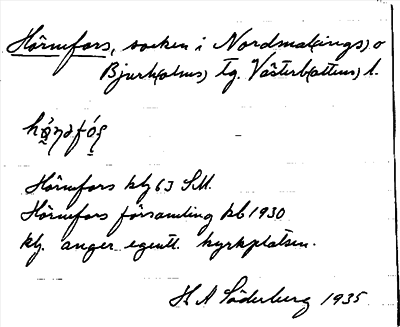 Hörnefors, socken i Nordmal(ings) o
Bjurh(olms) tg. Västerb(ottens) l.
Hörnefors klg 63 SM.
Hörnefors församling kb 1930
klg. anger egentl. kyrkplatsen.
H A Söderberg 1935